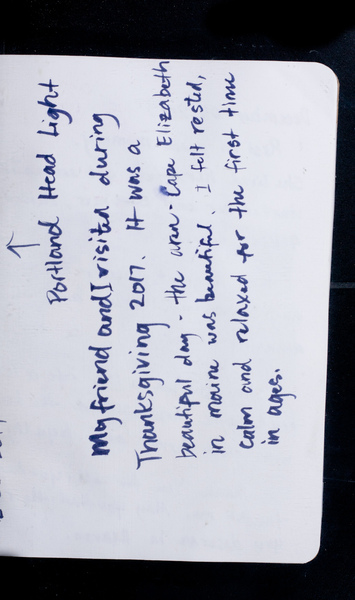 ↑
Portland Head Light
My friend and I visited during
Thanksgiving 2017. It was a
beautiful day - the area - Cape Elizabeth
in maine was beautiful. I felt rested,
calm and relaxed for the first time
in ages.